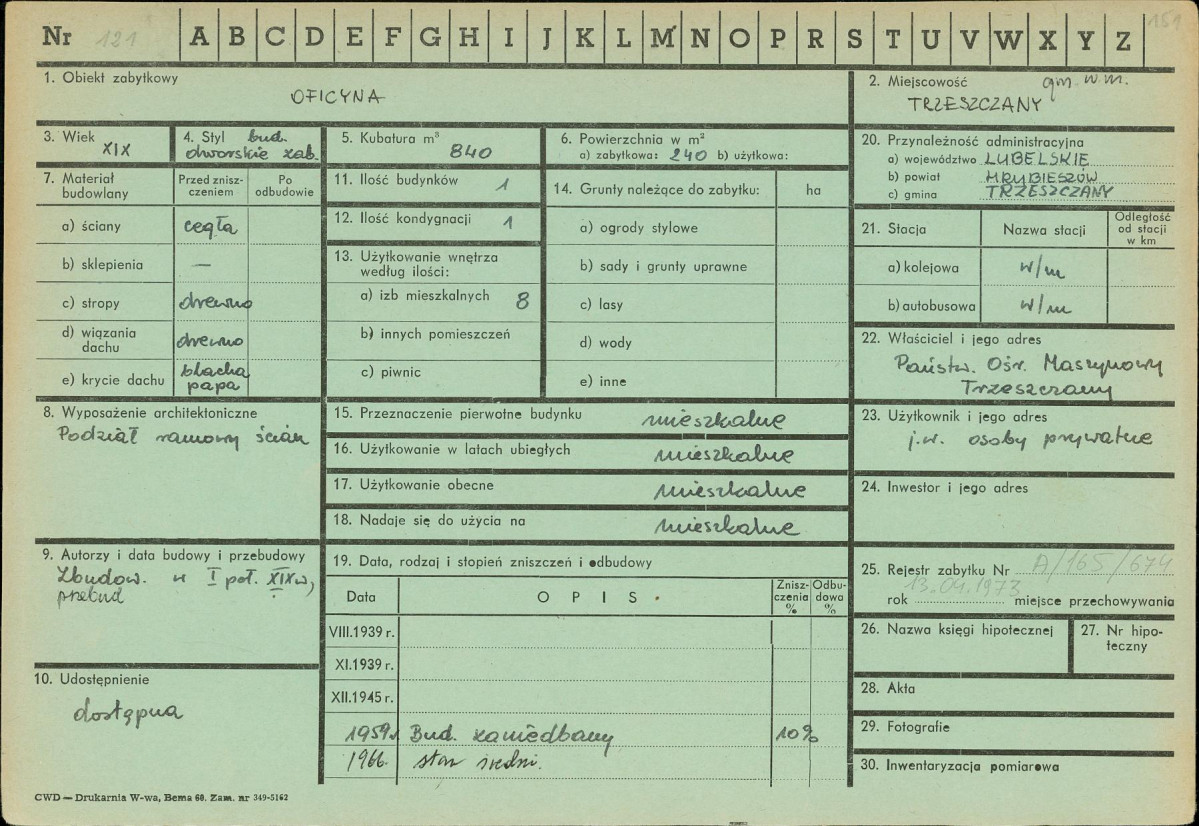 Nr 121 A B C D E F G H I J K L M N O P R S T U V W X Y Z 151
1. Obiekt zabytkowy
OFICYNA
2. Miejscowość gm. w.m.
TRZESZCZANY
3. Wiek
XIX
4. Styl bud.
dworskie zab.
5. Kubatura m³
840
6. Powierzchnia w m²
a) zabytkowa: 240 b) użytkowa:
7. Materiał budowlany
Przed zniszczeniem
Po odbudowie
a) ściany cegła
b) sklepienia —
c) stropy drewno
d) wiązania dachu drewno
e) krycie dachu blacha
papa
8. Wyposażenie architektoniczne
Podział ramowy ścian
9. Autorzy i data budowy i przebudowy
Zbudow. w I poł. XIX w,
przebud
10. Udostępnienie
dostępna
11. Ilość budynków 1
12. Ilość kondygnacji 1
13. Użytkowanie wnętrza
według ilości:
a) izb mieszkalnych 8
b) innych pomieszczeń
c) piwnic
14. Grunty należące do zabytku: ha
a) ogrody stylowe
b) sady i grunty uprawne
c) lasy
d) wody
e) inne
15. Przeznaczenie pierwotne budynku mieszkalne
16. Użytkowanie w latach ubiegłych mieszkalne
17. Użytkowanie obecne mieszkalne
18. Nadaje się do użycia na mieszkalne
19. Data, rodzaj i stopień zniszczeń i odbudowy
Data OPIS Zniszczenia % Odbudowa %
VIII.1939 r.
XI.1939 r.
XII.1945 r.
1959r Bud. zaniedbany 10%
1966. stan średni.
20. Przynależność administracyjna
a) województwo LUBELSKIE
b) powiat HRUBIESZÓW
c) gmina TRZESZCZANY
21. Stacja Nazwa stacji Odległość od stacji w km
a) kolejowa w/m
b) autobusowa w/m
22. Właściciel i jego adres
Państw. Ośr. Maszynowy
Trzeszczany
23. Użytkownik i jego adres
j.w. osoby prywatne
24. Inwestor i jego adres
25. Rejestr zabytku Nr A/165/674
13.04.1973
rok miejsce przechowywania
26. Nazwa księgi hipotecznej
27. Nr hipoteczny
28. Akta
29. Fotografie
30. Inwentaryzacja pomiarowa
CWD — Drukarnia W-wa, Bema 60. Zam. nr 349-5162